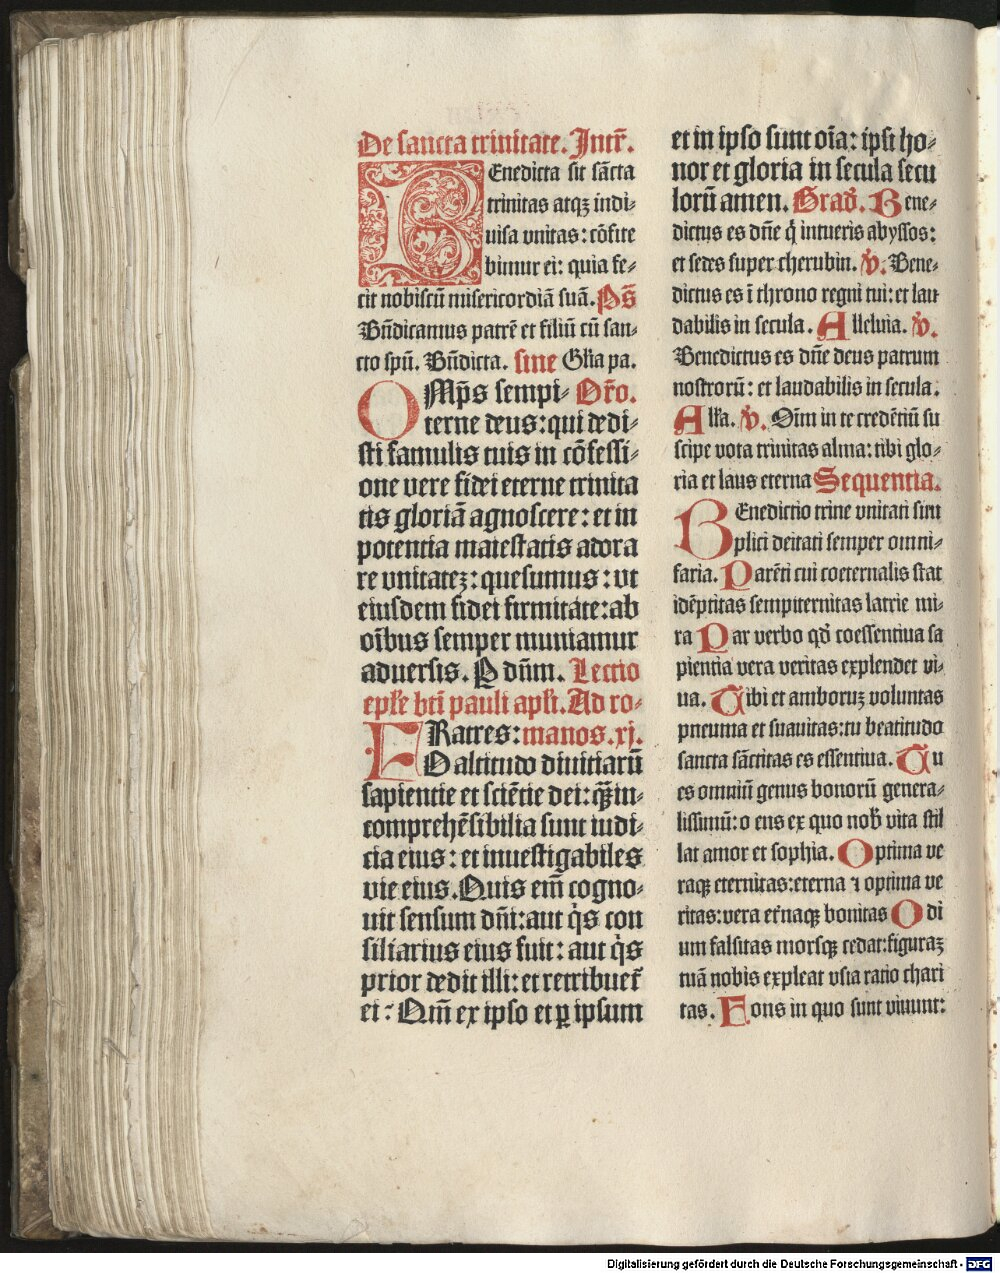 De sancta trinitate. Intr̄.
BEnedicta sit sācta
trinitas atqꝫ indi⸗
uisa vnitas: cōfite
bimur ei: quia fe⸗
cit nobiscū misericordiā suā. Ps̄
Bn̄dicamus patrē et filiū cū san⸗
cto spū. Bn̄dicta. sine Gl̄ia pa.
OMp̄s sempi⸗ Or̄o.
terne deus: qui dedi⸗
sti famulis tuis in cōfessi⸗
one vere fidei eterne trinita
tis gloriā agnoscere: et in
potentia maiestatis adora
re vnitateꝫ: quesumus: vt
eiusdem fidei firmitate: ab
oībus semper muniamur
aduersis. P dn̄m. Lectio
epl̄e bt̄i pauli apl̄i. Ad ro⸗
FRatres: manos. xj.
O altitudo diuitiarū
sapientie et sciētie dei: q̄ꝫ in⸗
comprehēsibilia sunt iudi⸗
cia eius: et inuestigabiles
vie eius. Quis em̄ cogno⸗
uit sensum dn̄i: aut q̇s con
siliarius eius fuit: aut q̇s
prior dedit illi: et retribuet̄
ei: Qm̄ ex ipso et ꝑ ipsum
et in ipso sunt oīa: ipsi ho⸗
nor et gloria in secula secu
lorū amen. Grad̄. Bene⸗
dictus es dn̄e q̇ intueris abyssos:
et sedes super cherubin. v̇. Bene⸗
dictus es ī throno regni tui: et lau
dabilis in secula. Alleluia. v̇.
Benedictus es dn̄e deus patrum
nostrorū: et laudabilis in secula.
All̄a. v̇. Oīm in te credētiū su
scipe vota trinitas alma: tibi glo⸗
ria et laus eterna Sequentia.
BEnedictio trine vnitati sim
plici deitati semper omni⸗
faria. Parēti cui coeternalis stat
idēptitas sempiternitas latrie mi⸗
ra Par verbo qd̄ coessentiua sa
pientia vera veritas explendet vi⸗
ua. Tibi et amboruꝫ voluntas
pneuma et suauitas: tu beatitudo
sancta sāctitas es essentiua. Tu
es omniū genus bonorū genera⸗
lissimū: o ens ex quo nob̄ vita stil
lat amor et sophia. Optima ve
raqꝫ eternitas: eterna ⁊ optima ve
ritas: vera et̄naqꝫ bonitas Odi
um falsitas morsqꝫ cedat: figuraꝫ
tuā nobis expleat vsia ratio chari
tas. Fons in quo sunt viuunt:
Digitalisierung gefördert durch die Deutsche Forschungsgemeinschaft - DFG